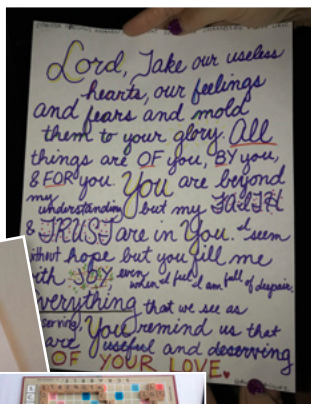 Lord, Take our useless
hearts, our feelings
and fears and mold
them to your glory. All
things are OF you, BY you,
& FOR you. You are beyond
my understanding but my FAITH
& TRUST are in You. I seem
without hope but you fill me
with JOY even when I feel I am full of despair.
Everything that we see as
You remind us that
are useful and deserving
OF YOUR LOVE.